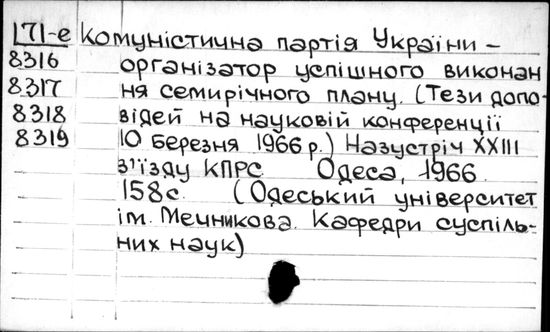 171-е Комуністична партія України –
8316 організатор успішного виконан
8317 ня семирічного плану. (Тези допо-
8318 відей на науковій конференції
8319 10 березня 1966 р.) Назустріч XXIII
з'їзду КПРС Одеса, 1966.
158с. (Одеський університет
ім. Мечникова. Кафедри суспіль-
них наук)